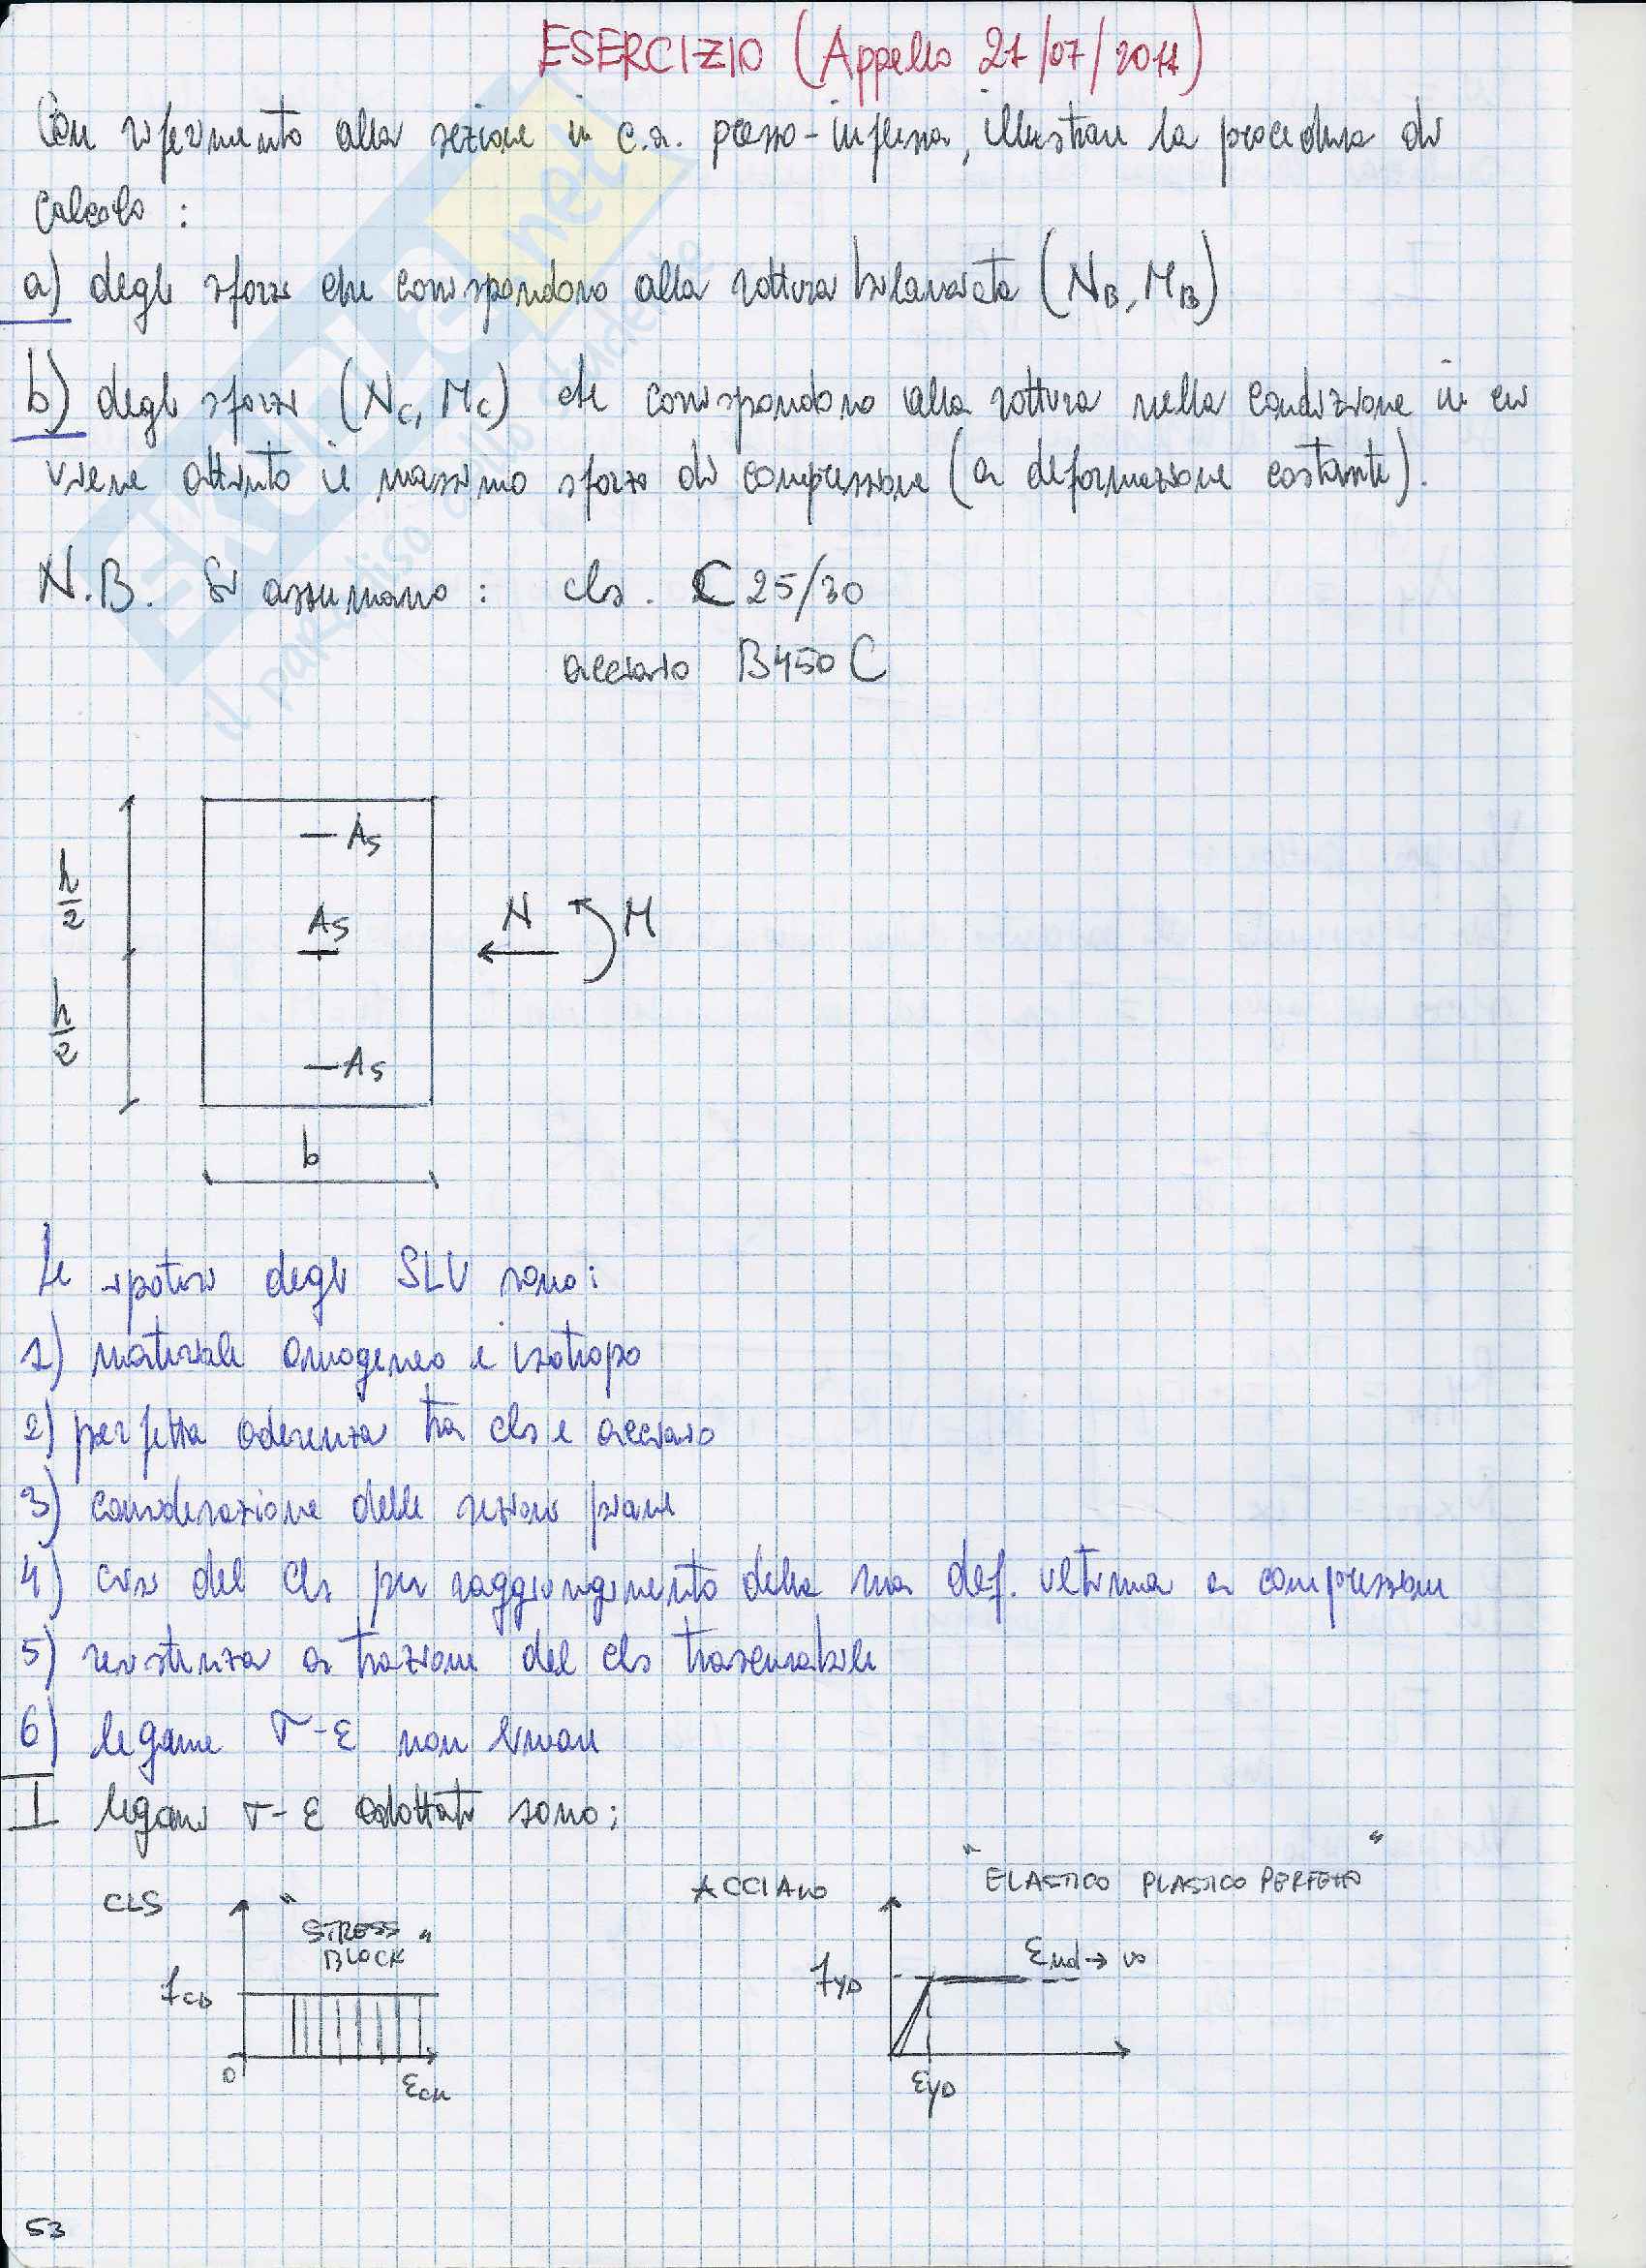 ESERCIZIO (Appello 21/07/2011)
Con riferimento alla sezione in c.a. presso-inflessa, illustrare la procedura di
calcolo :
a) degli sforzi che corrispondono alla rottura bilanciata (NB, MB)
b) degli sforzi (Nc, Mc) che corrispondono alla rottura nella condizione in cui
viene attinto il massimo sforzo di compressione (a deformazione costante).
N.B. Si assumano : cls. C 25/30
acciaio B450C
As
h/2
As
N
M
h/2
As
b
Le ipotesi degli SLU sono:
1) materiale omogeneo e isotropo
2) perfetta aderenza tra cls e acciaio
3) considerazione delle sezioni piane
4) crisi del cls per raggiungimento della sua def. ultima a compressione
5) resistenza a trazione del cls trascurabile
6) legame σ-ε non lineare
I legami σ-ε adottati sono:
CLS
"STRESS BLOCK"
fcd
0
εcu
ACCIAIO
"ELASTICO PLASTICO PERFETTO"
fyd
εud→∞
εyd
53
skuola.net
il paradiso dello studente